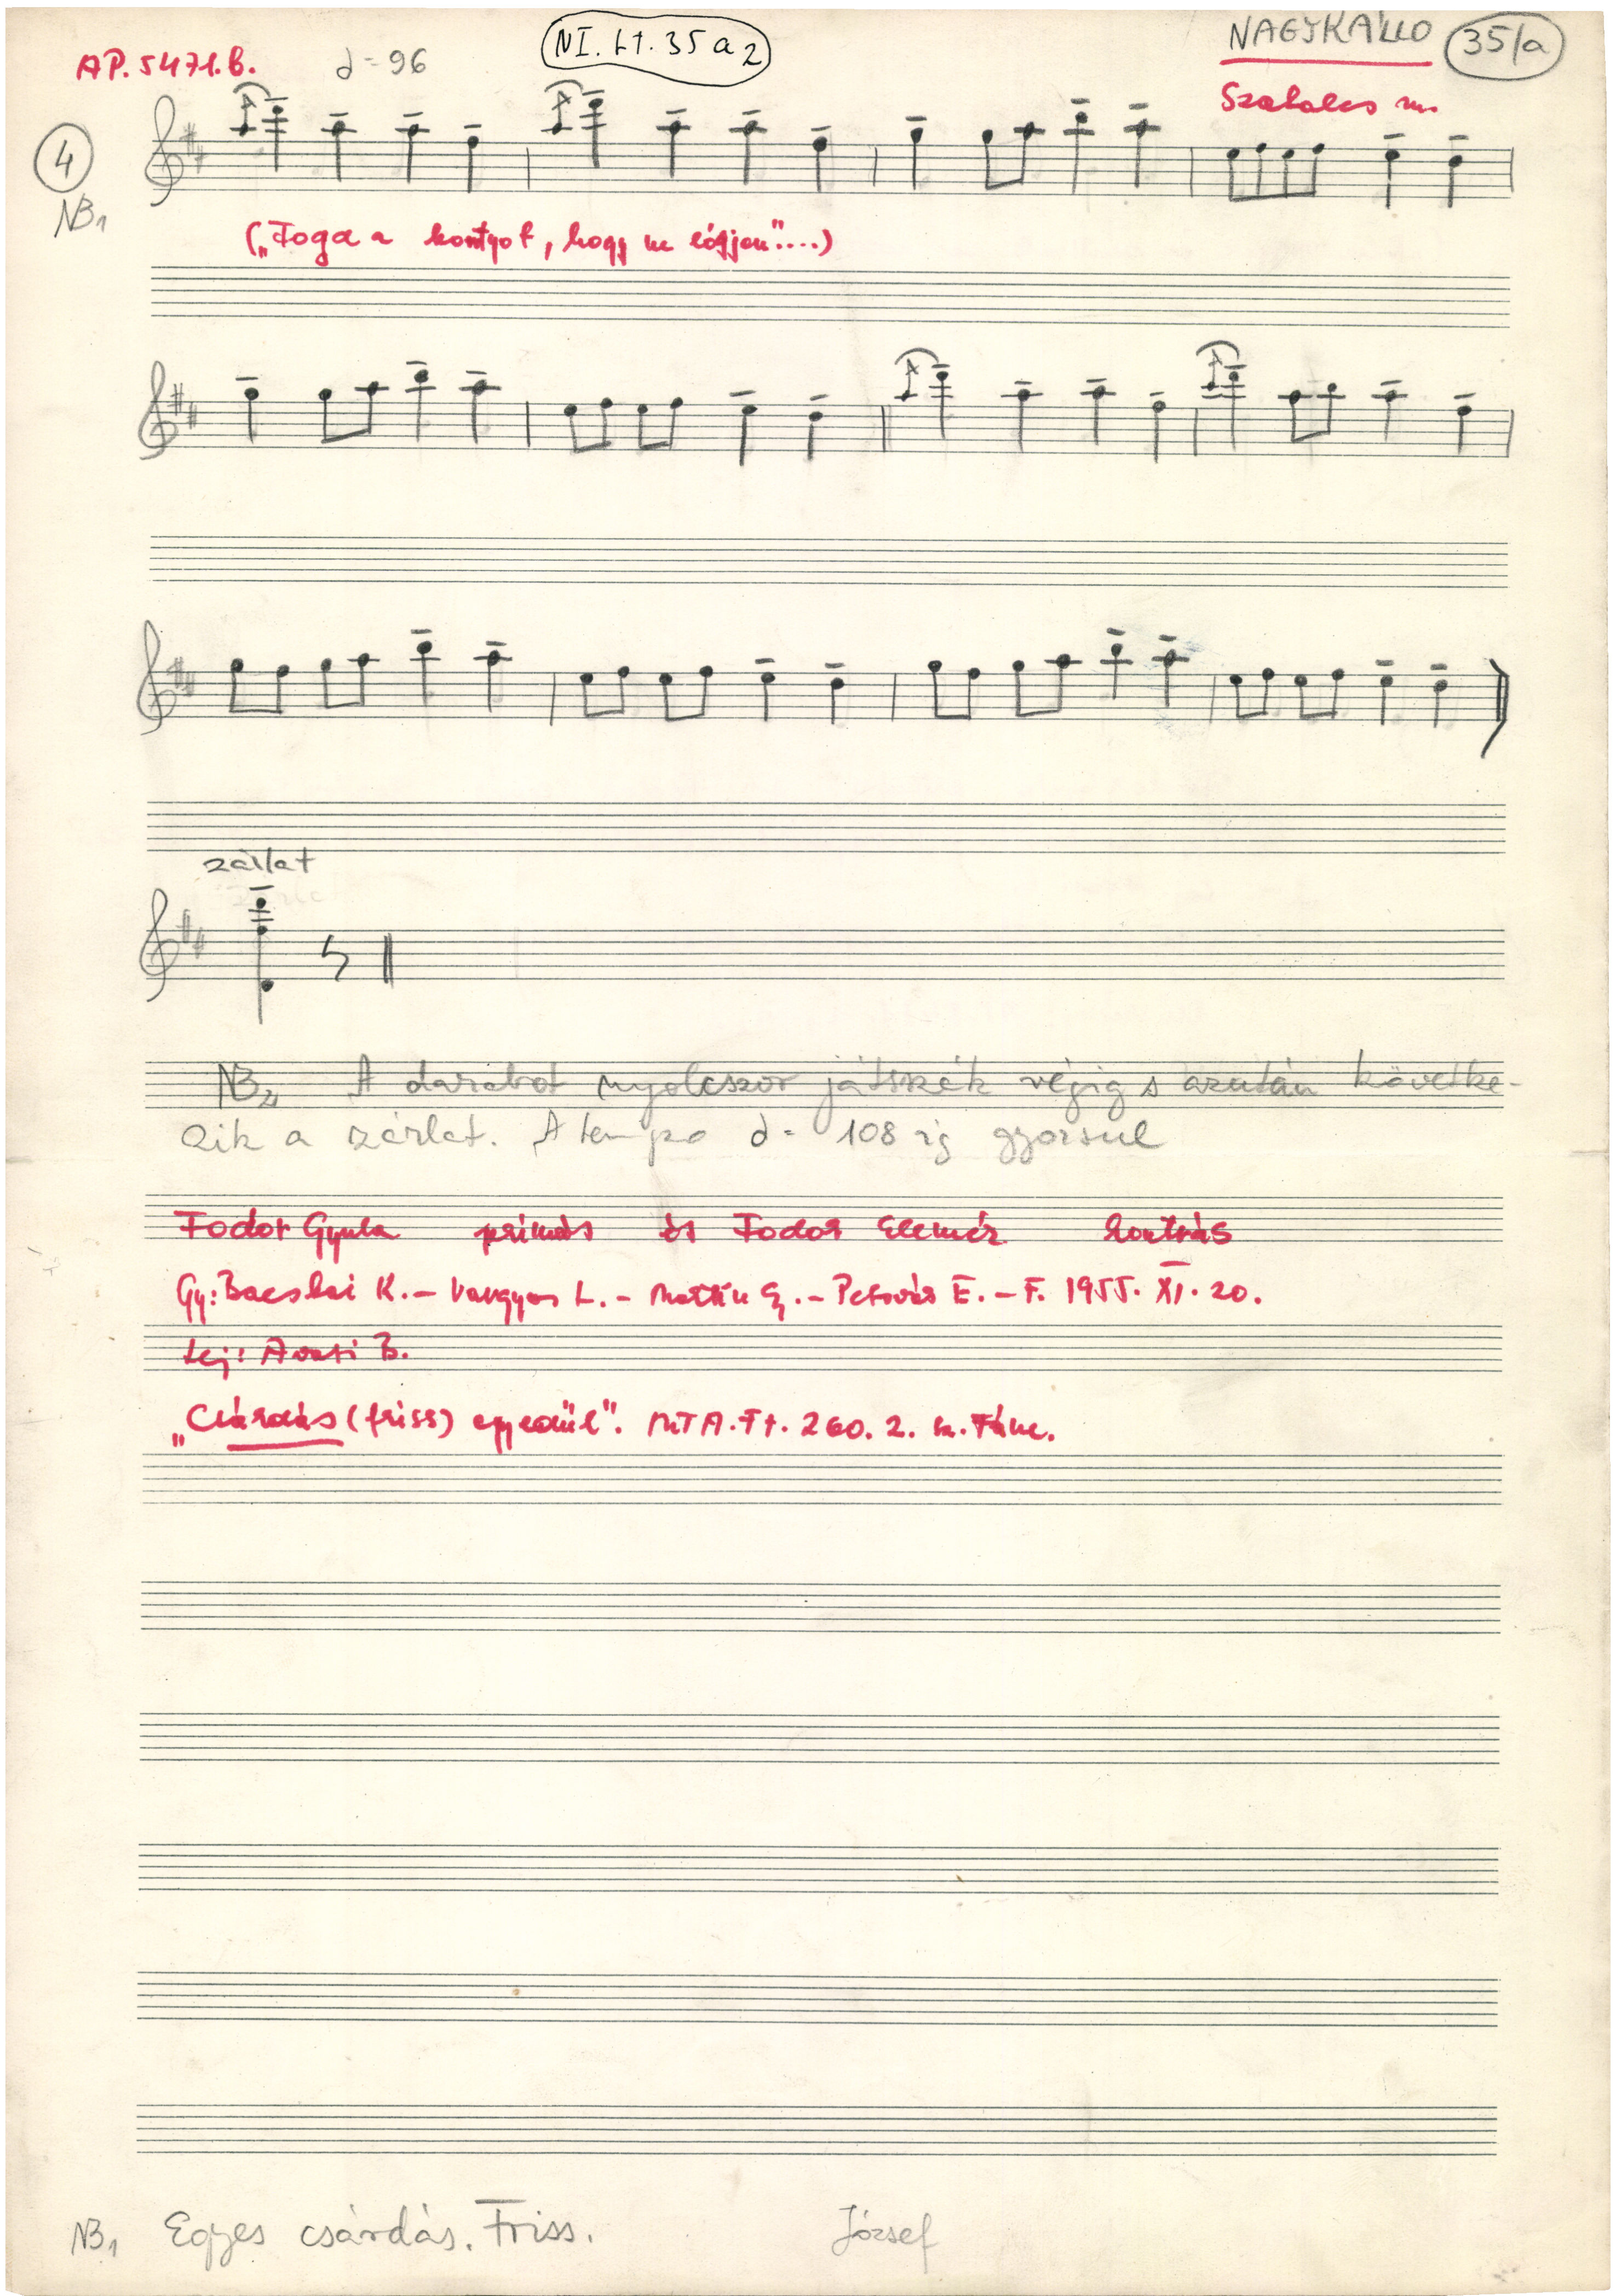 AP. 5471.b.
♩=96
NI. LT. 35 a 2
NAGYKÁLLÓ
35/a
Szabolcs m.
4
NB1
(„Fogd a kontyot, hogy ne lógjon"....)
zárlat
NB2 A darabot nyolcszor játszák végig s azután követke-
zik a zárlat. A tempo ♩= 108 ig gyorsul
Fodor Gyula prímás és Fodor Elemér kontrás
Gy: Bacskai K. – Vargyas L. – Martin Gy. – Pesovár E. – F. 1955. XI. 20.
Lej: Avasi B.
„Csárdás (friss) egyedül". MTA. Ft. 260. 2. sz. Tánc.
NB1 Egyes csárdás. Friss.
József